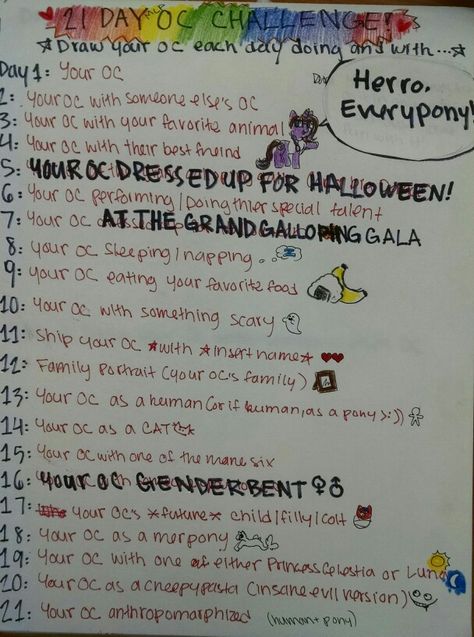 21 DAY MLP OC CHALLENGE!
Draw your OC each day doing and with...
Day 1: Your OC
Herro, Everypony!
2: Your OC with someone else's OC
3: Your OC with your favorite animal
4: Your OC with their best freind
5: YOUR OC DRESSED UP FOR HALLOWEEN!
6: Your OC performing/Doing thier special talent
7: Your OC AT THE GRAND GALLOPING GALA
8: Your OC sleeping/napping...
9: Your OC eating your favorite food
10: Your OC with something scary
11: Ship your OC *with *insert name*
12: Family portrait (your OC's family)
13: Your OC as a human (or if human, as a pony >:))
14: Your OC as a CAT
15: Your OC with one of the mane six
16: Your OC GENDERBENT ♀♂
17: Your OC's *future* child/filly/colt
18: Your OC as a merpony
19: Your OC with one of either Princess Celestia or Luna
20: Your OC as a creepypasta (insane evil version)
21: Your OC anthropomorphized (human+pony)